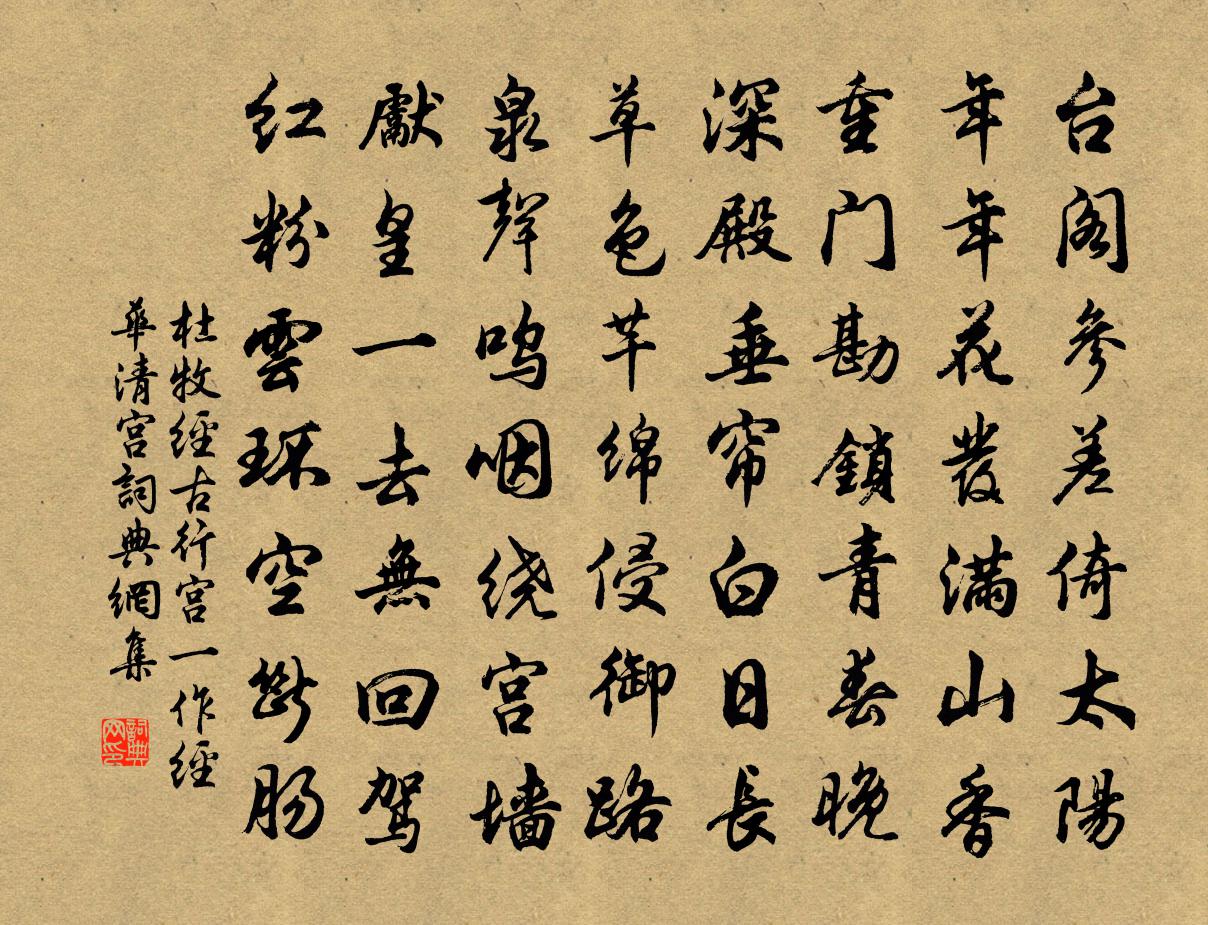 台阁参差倚太陽
年年花發满山香
重门勘鎖青春晚
深殿垂帘白日長
草色芊绵侵御路
泉聲鸣咽绕宫墙
獻皇一去無回驾
红粉雲环空斷肠
杜牧經古行宫一作經
華清宫詞典網集
詞典网印